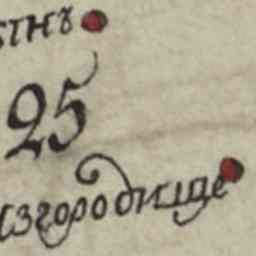 ѣтнъ
25
изгородище